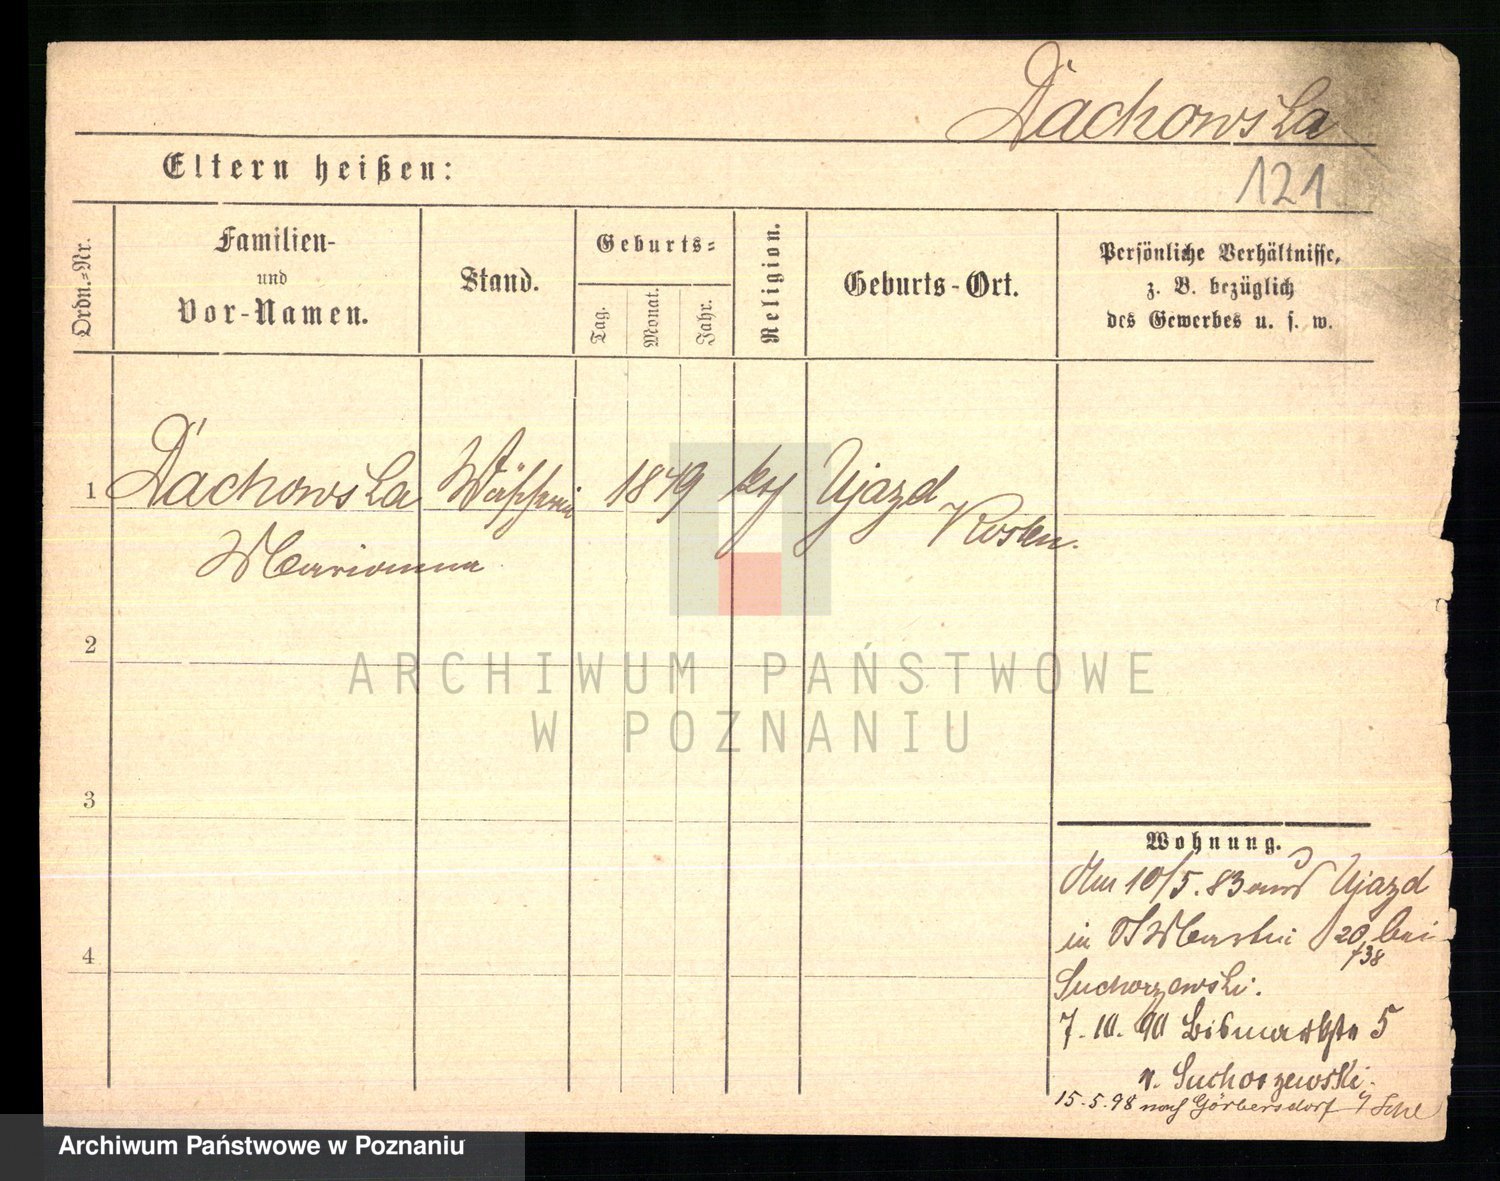 Dachowska
Eltern heißen:
121
Ordn.-Nr.
Familien-
und
Vor-Namen.
Stand.
Geburts-
Tag.
Monat.
Jahr.
Religion.
Geburts-Ort.
Persönliche Verhältnisse,
z. B. bezüglich
des Gewerbes u. s. w.
1 Dachowska 1849 Ujazd
Kosten.
Marianna
2
3
4
ARCHIWUM PAŃSTWOWE
W POZNANIU
Wohnung.
10/5.83 aus Ujazd
in St Martin 20 bei
/38
Suchorzewski.
7.10.90 Bismarkstr 5
v. Suchorzewski.
15.5.98 nach Görbersdorf
Archiwum Państwowe w Poznaniu